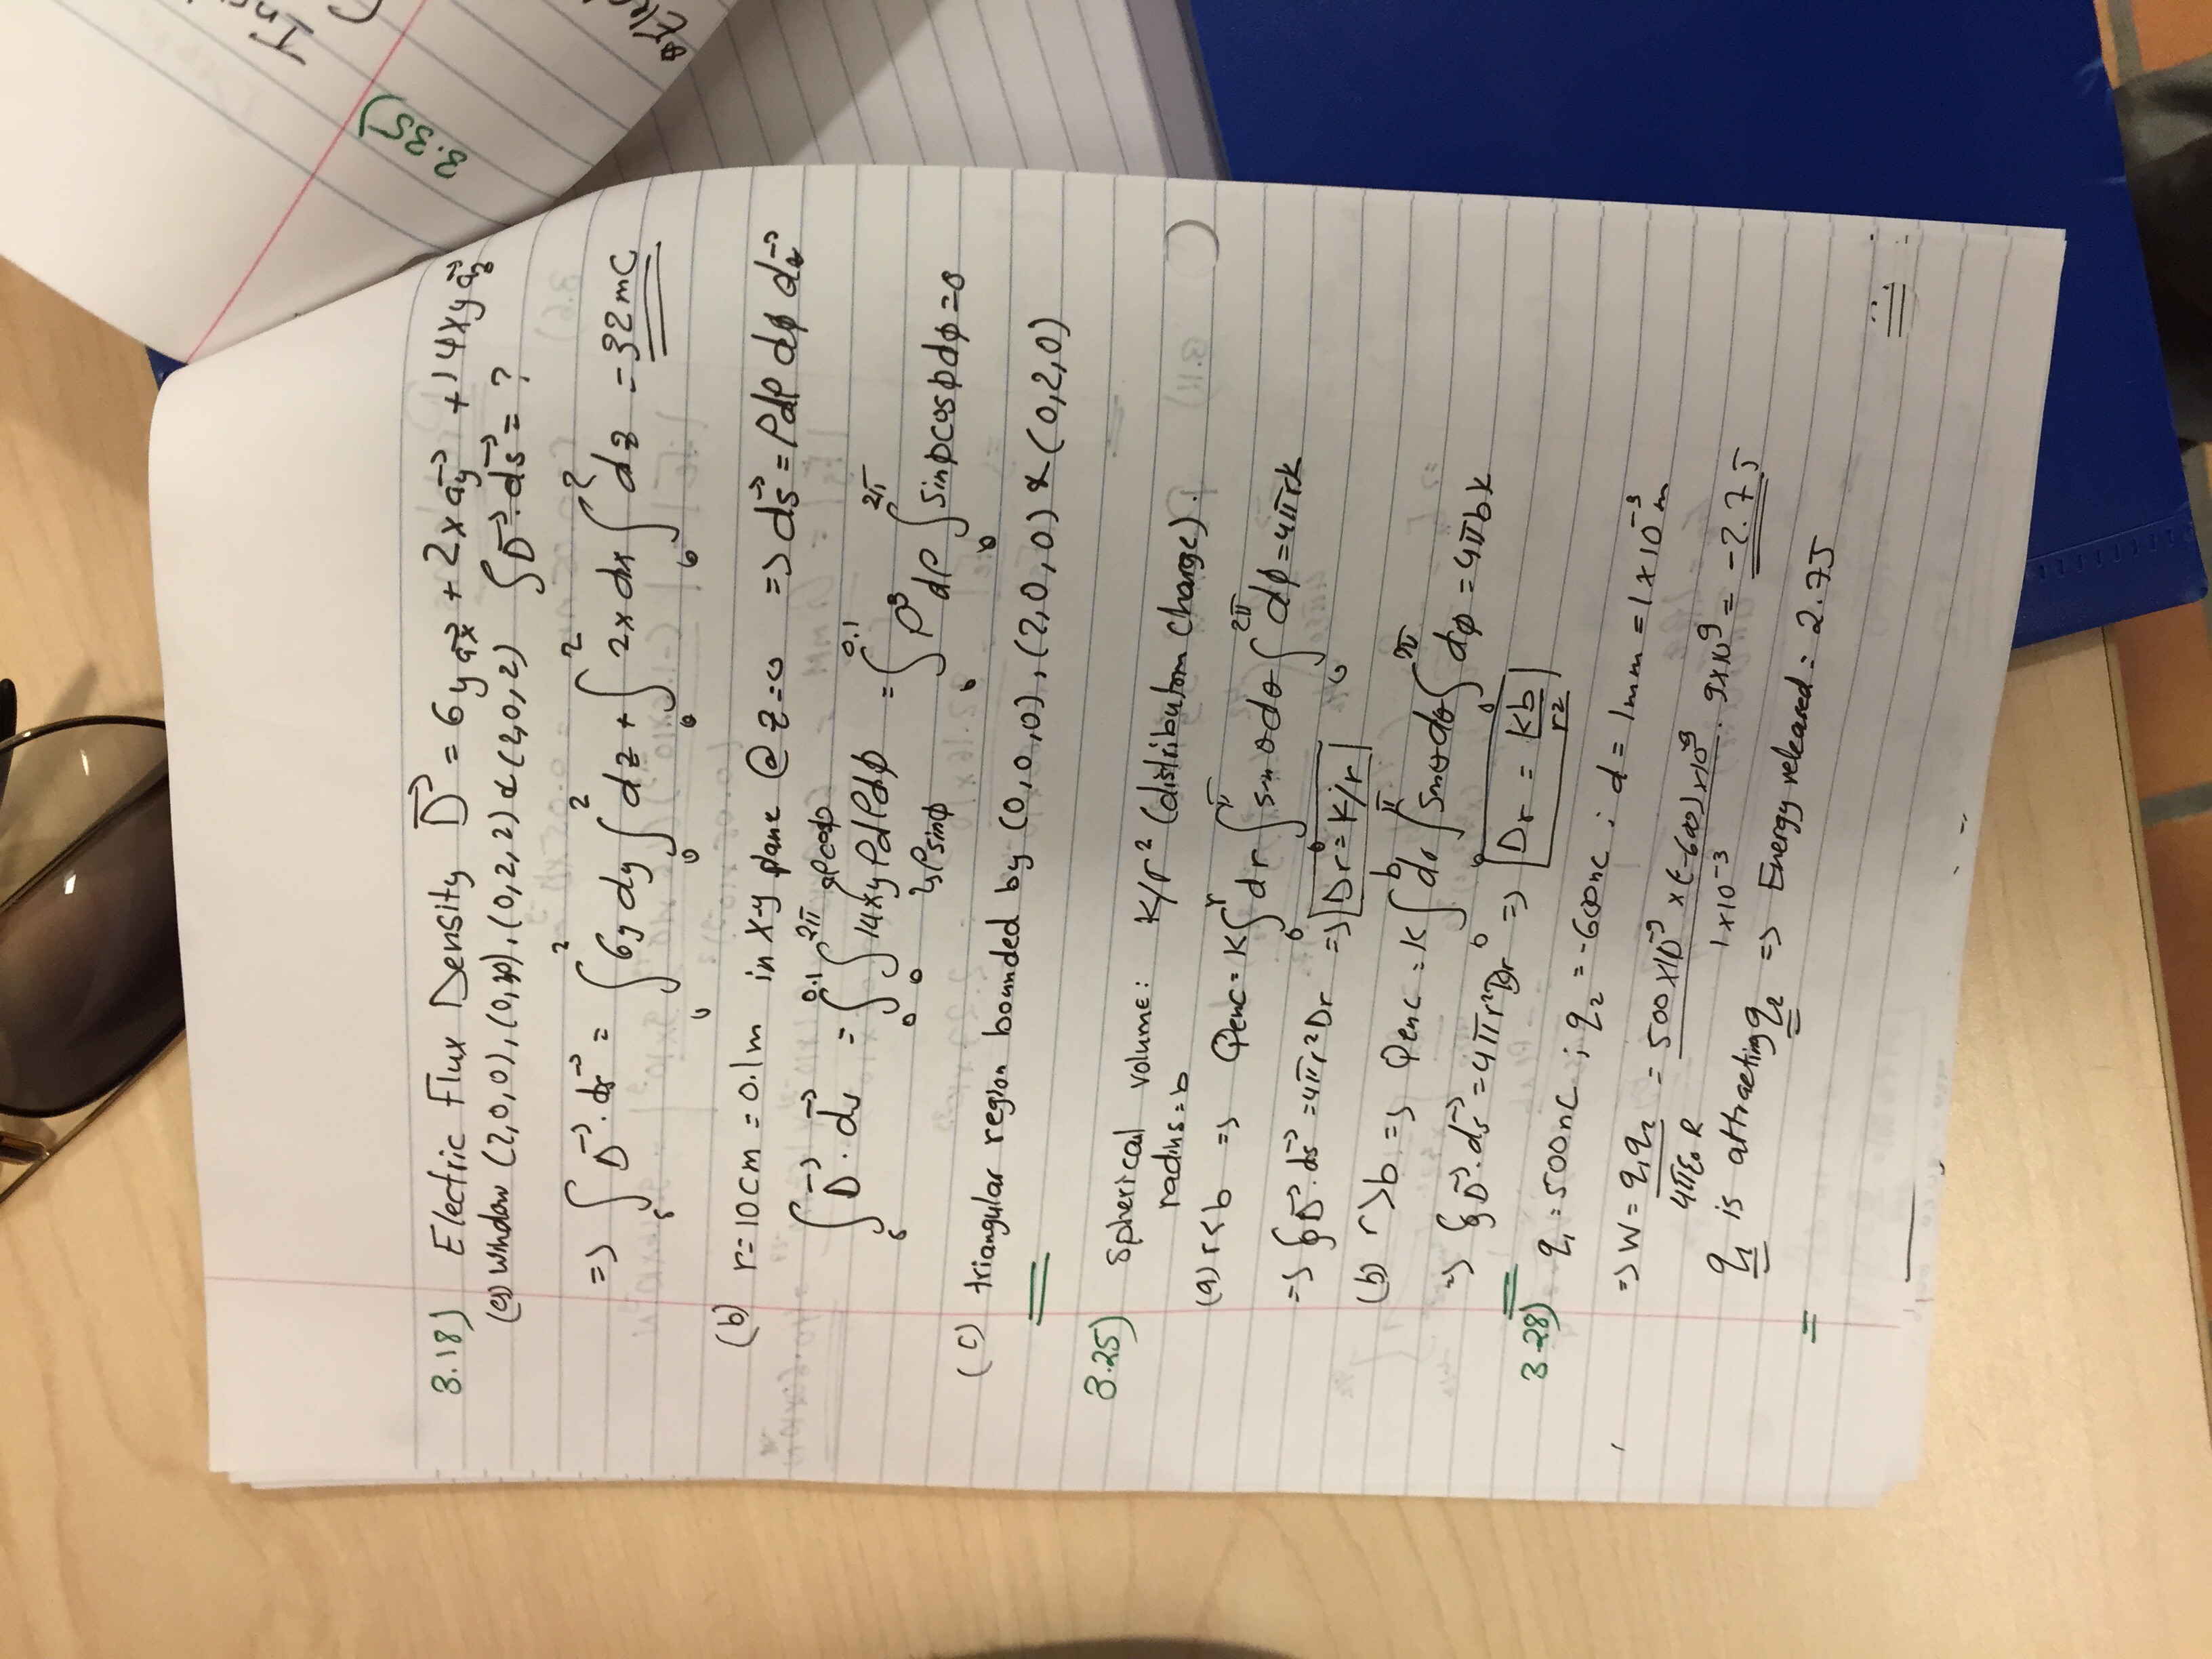 3.18) Electric Flux Density D⃗ = 6y a⃗x + 2x a⃗y + 14xy a⃗z
(a) window (2,0,0), (0,2,0), (0,2,2) & (2,0,2) ∫D⃗·ds⃗ = ?
=> ∫s D⃗·ds⃗ = ∫₀² 6y dy ∫₀² dz + ∫₀² 2x dx ∫₀² dz = 32 mC
(b) r = 10cm = 0.1m in x-y plane @ z=0 => ds⃗ = ρdρ dϕ
∫s D⃗·ds⃗ = ∫₀^0.1 ∫₀^2π 14xy ρdρdϕ = ∫₀^0.1 ρ³ dρ ∫₀^2π sinϕcosϕdϕ = 0
ρcosϕ
ρsinϕ
(c) triangular region bounded by (0,0,0), (2,0,0) & (0,2,0)
3.25) Spherical volume: k/r² (distributon charge).
radius = b
(a) r<b => Qenc = k∫₀^r dr ∫₀^π sinθdθ ∫₀^2π dϕ = 4πrk
=> ∮D⃗·ds⃗ = 4πr²Dr => Dr = k/r
(b) r>b => Qenc = k∫₀^b dr ∫₀^π sinθdθ ∫₀^2π dϕ = 4πbk
=> ∮D⃗·ds⃗ = 4πr²Dr => Dr = kb/r²
3.28) q₁ = 500nC ; q₂ = -600nC ; d = 1mm = 1×10⁻³m
=> W = q₁q₂/4πε₀R = 500×10⁻⁹×(-600)×10⁻⁹/1×10⁻³ · 9×10⁹ = -2.7J
q₁ is attracting q₂ => Energy released: 2.7J
3.35)